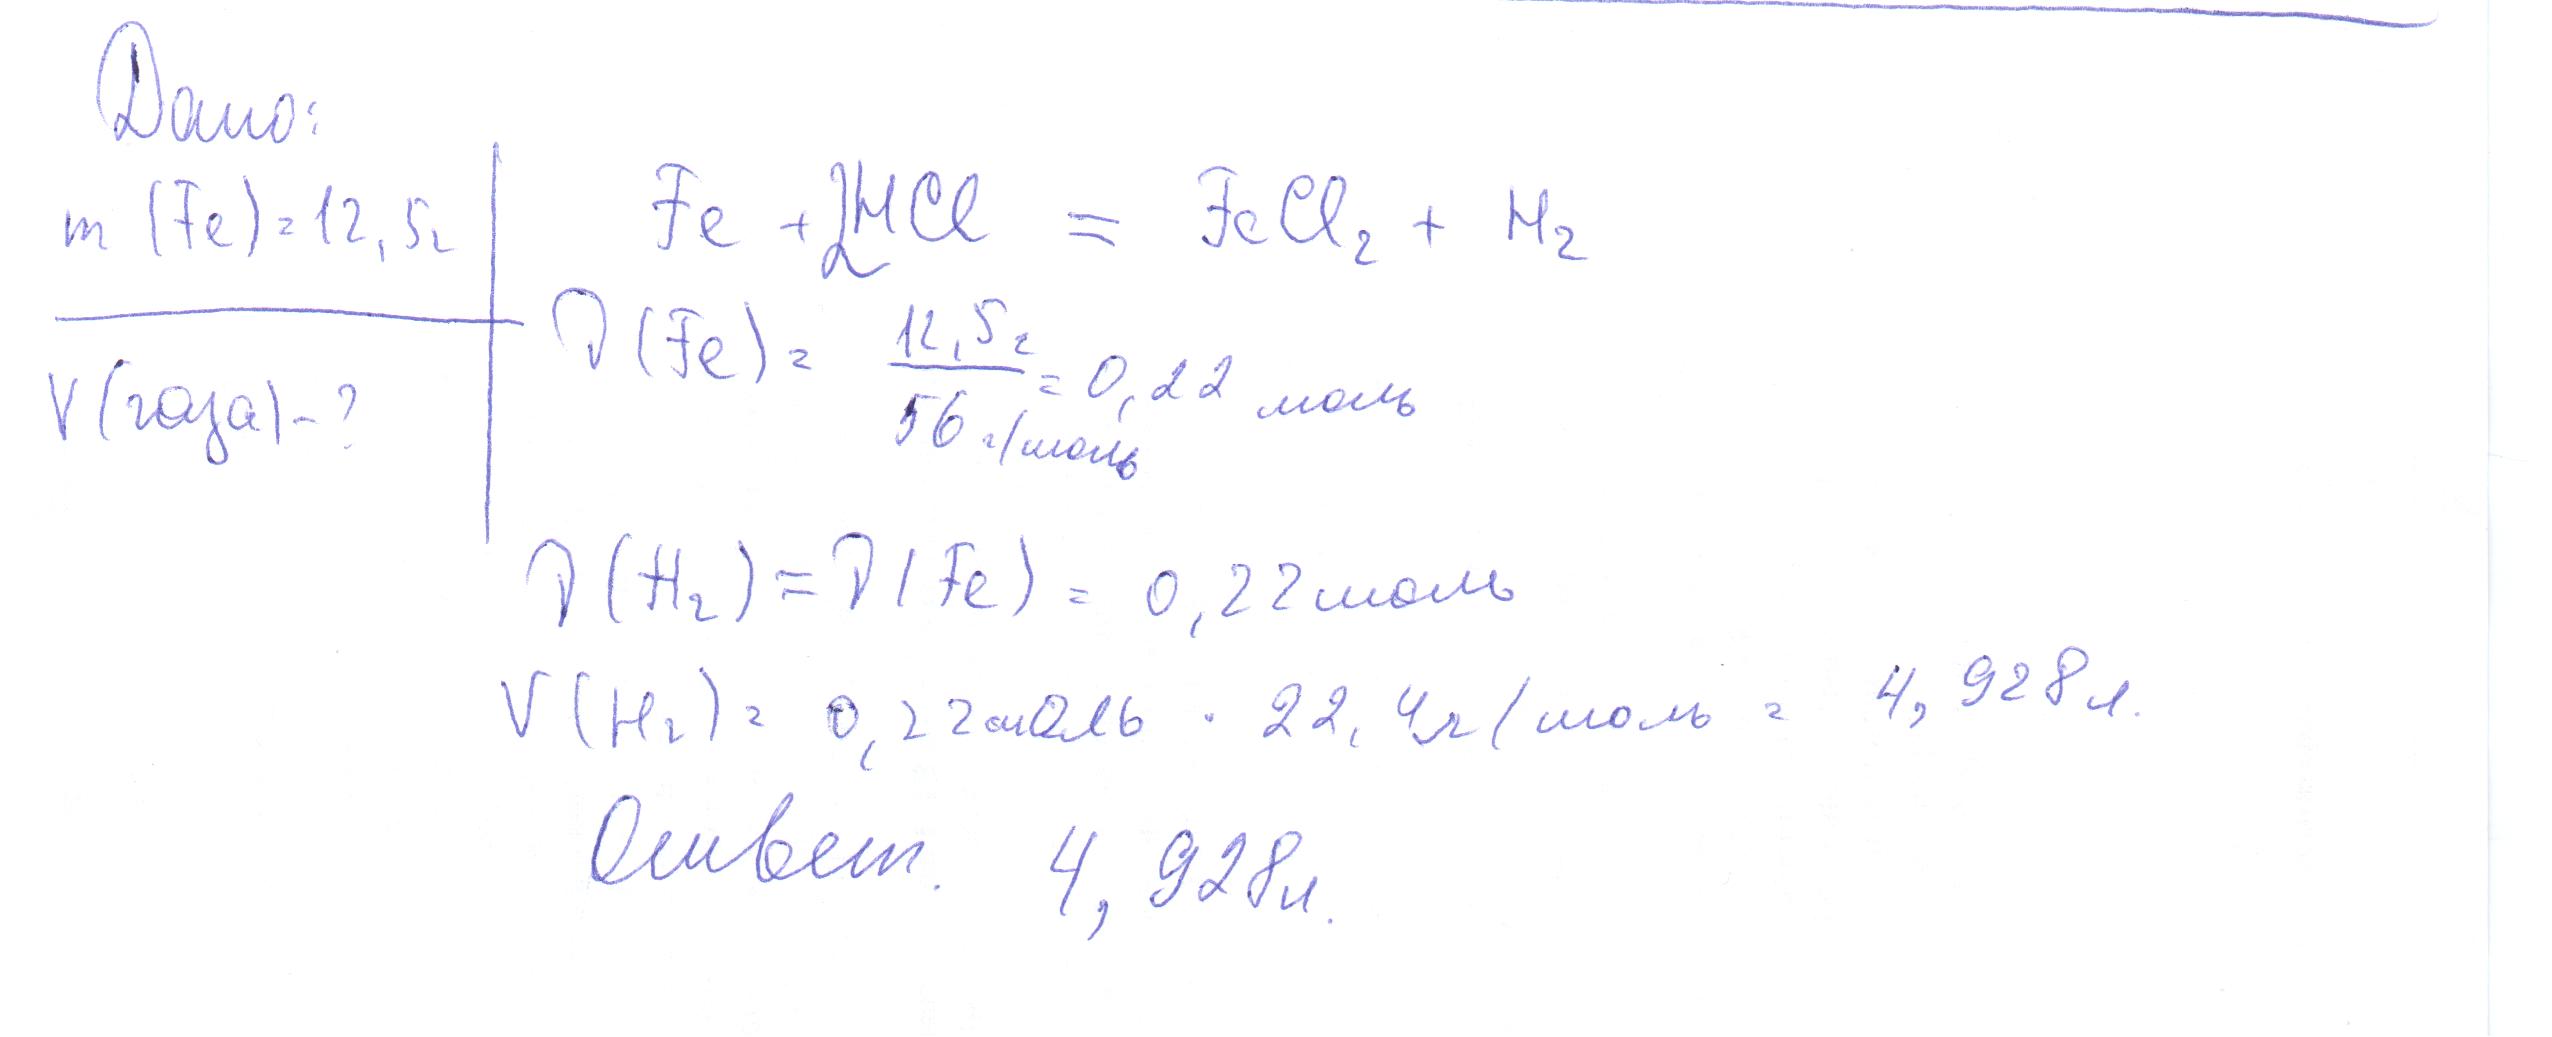 Дано:
m (Fe) = 12,5г
V(газа) - ?
Fe + 2HCl = FeCl₂ + H₂
ν(Fe) = 12,5г / 56 г/моль = 0,22 моль
ν(H₂) = ν(Fe) = 0,22 моль
V(H₂) = 0,22 моль · 22,4 л/моль = 4,928 л.
Ответ. 4,928л.